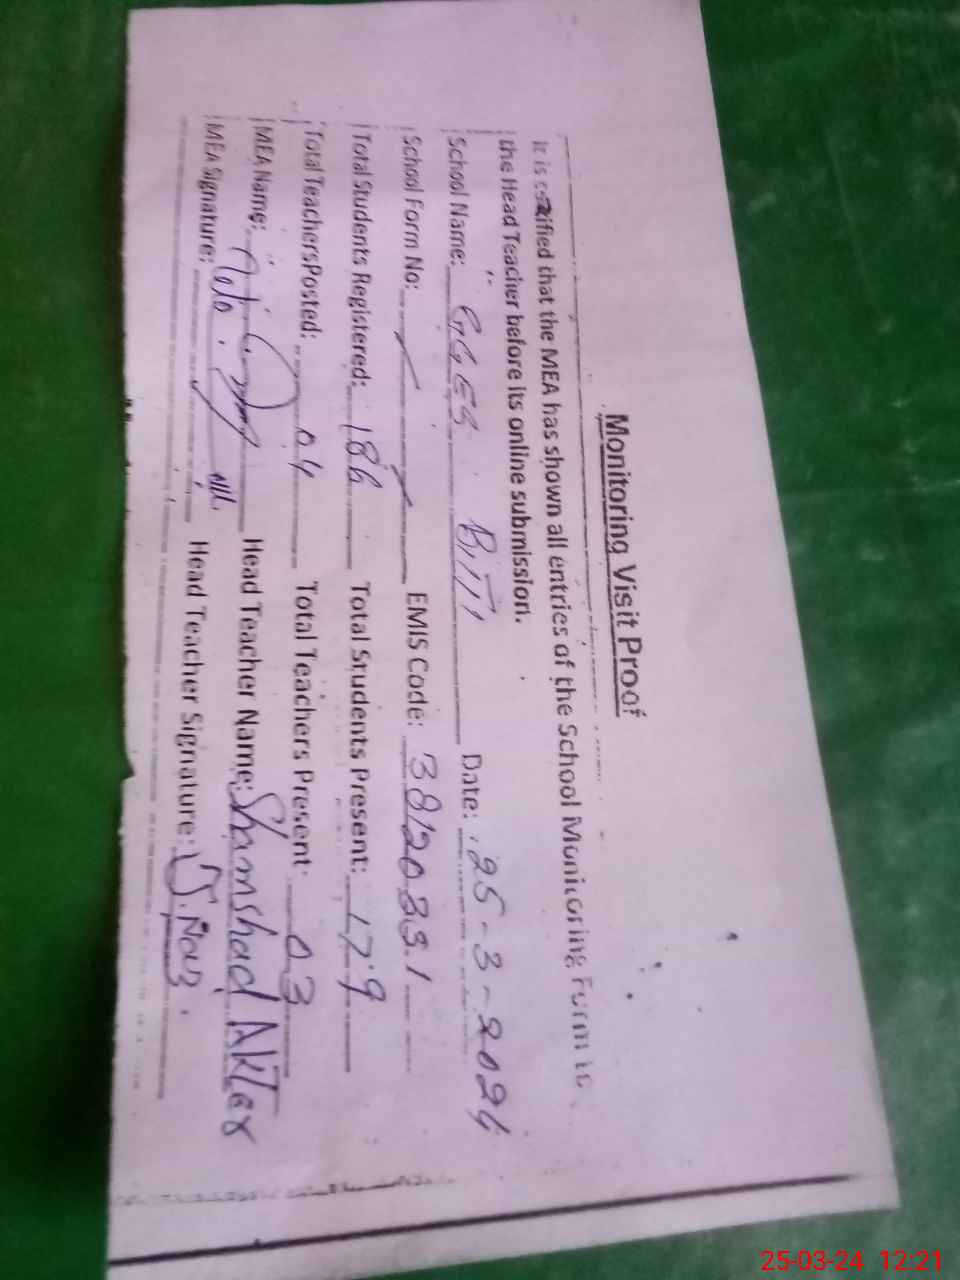 Monitoring Visit Proof
It is certified that the MEA has shown all entries of the School Monitoring Form to
the Head Teacher before its online submission.
School Name: GGES Date: 25-3-2024
School Form No: EMIS Code: 38120331
Total Students Registered: 186 Total Students Present: 179
Total Teachers Posted: 04 Total Teachers Present: 03
MEA Name: Head Teacher Name: Shamshad Akter
MEA Signature: Head Teacher Signature:
25-03-24 12:21